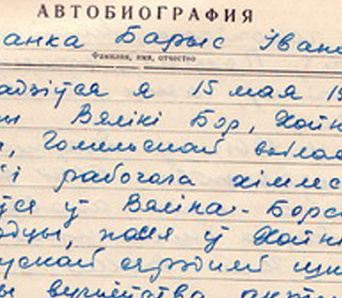 АВТОБИОГРАФИЯ
анка Барыс Іван
Фамилия, имя, отчество
адзіўся я 15 мая 19
Вялікі Бор, Хойн
, Гомельскай воблас
і рабочага хімлес
ўся ў Вяліка-Борс
одцы, пасля ў Хойні
ускай сярэдняй шк
вучыўства